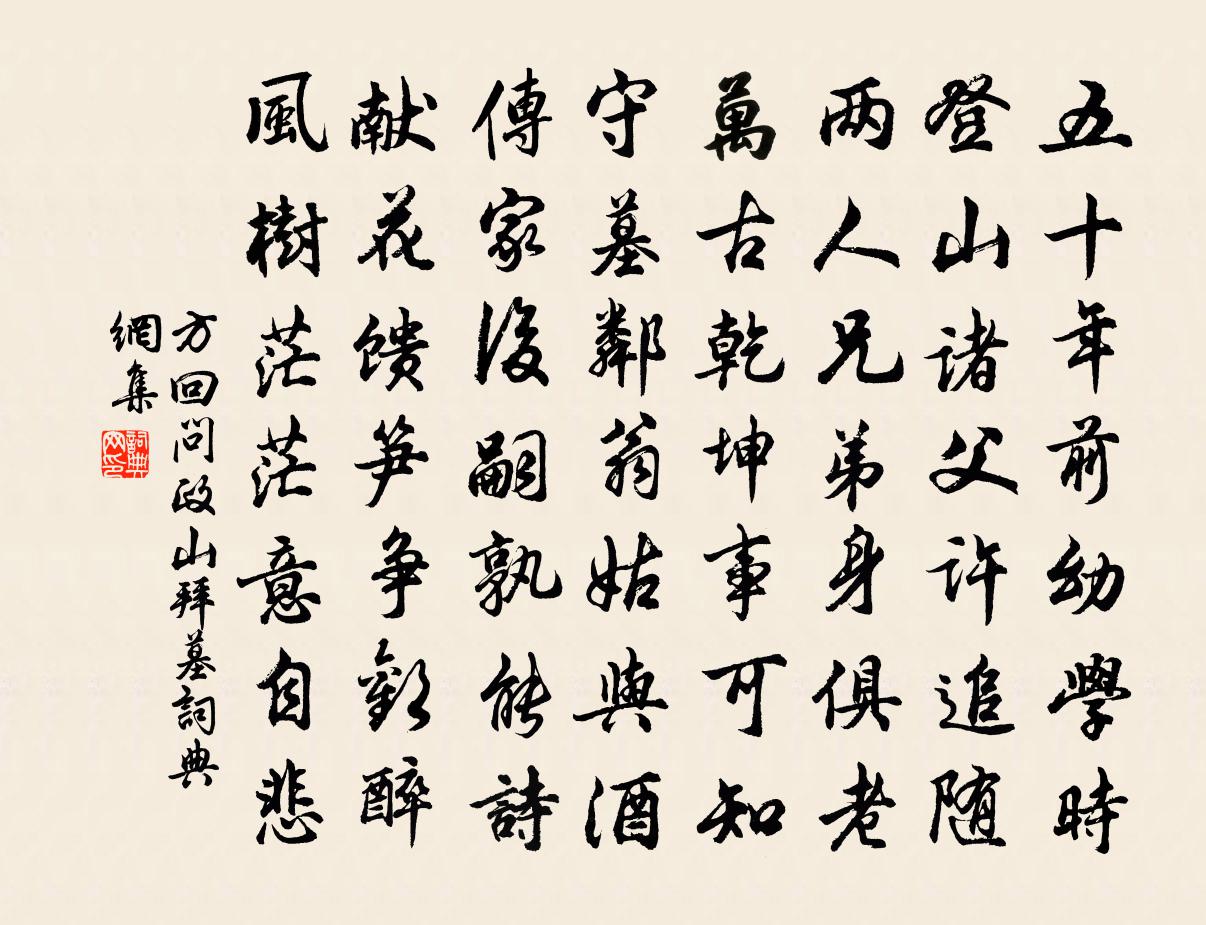 五十年前幼學時
登山諸父許追随
两人兄弟身俱老
萬古乾坤事可知
守墓鄰翁姑與酒
傳家後嗣孰能詩
献花馈笋争勸醉
風樹茫茫意自悲
方回問政山拜墓詞典
網集
詞典
网印